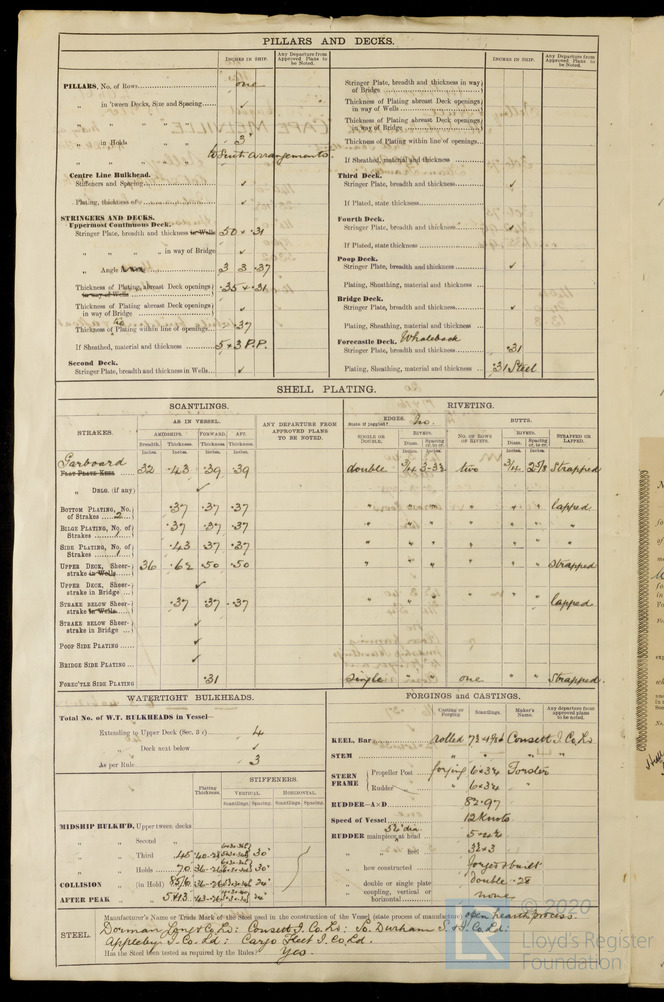 PILLARS AND DECKS.
INCHES IN SHIP.
Any Departure from Approved Plans to be Noted.
PILLARS, No. of Rows one
" in 'tween Decks, Size and Spacing ✓
" " " " ✓
" in Holds " 3"
" " " to suit arrangements
Centre Line Bulkhead.
Stiffeners and Spacing ✓
Plating, thickness of ✓
STRINGERS AND DECKS.
Uppermost Continuous Deck.
Stringer Plate, breadth and thickness in Wells 50 × .31
" " " " in way of Bridge ✓
" Angle 3 3 .37
Thickness of Plating, abreast Deck openings in way of Wells .35 + .31
Thickness of Plating abreast Deck openings in way of Bridge ✓
Thickness of Plating within line of openings .37
If Sheathed, material and thickness 5 × 3 P.P.
Second Deck.
Stringer Plate, breadth and thickness in Wells ✓
INCHES IN SHIP.
Any Departure from Approved Plans to be Noted.
Stringer Plate, breadth and thickness in way of Bridge
Thickness of Plating abreast Deck openings in way of Wells
Thickness of Plating abreast Deck openings in way of Bridge
Thickness of Plating within line of openings
If Sheathed, material and thickness
Third Deck.
Stringer Plate, breadth and thickness ✓
If Plated, state thickness
Fourth Deck.
Stringer Plate, breadth and thickness ✓
If Plated, state thickness
Poop Deck.
Stringer Plate, breadth and thickness ✓
Plating, Sheathing, material and thickness
Bridge Deck.
Stringer Plate, breadth and thickness ✓
Plating, Sheathing, material and thickness
Forecastle Deck. Whaleback
Stringer Plate, breadth and thickness .31
Plating, Sheathing, material and thickness .31 Steel
SHELL PLATING.
SCANTLINGS.
STRAKES.
AS IN VESSEL.
AMIDSHIPS. FORWARD. AFT.
Breadth. Thickness. Thickness. Thickness.
Inches. Inches. Inches. Inches.
ANY DEPARTURE FROM APPROVED PLANS TO BE NOTED.
RIVETING.
EDGES. State if joggled? No.
BUTTS.
SINGLE OR DOUBLE.
RIVETS.
Diam. Spacing cr. to cr.
NO. OF ROWS OF RIVETS.
RIVETS.
Diam. Spacing cr. to cr.
STRAPPED OR LAPPED.
Inches. Inches. Inches. Inches.
Garboard
FLAT PLATE KEEL 32 .43 .39 .39 double 3/4 two 3/4 Strapped
" DBLG. (if any) ✓
BOTTOM PLATING, No. of Strakes 2 .37 .37 .37 " " " " " " lapped
BILGE PLATING, No. of Strakes 1 .37 .37 .37 " " " " " " "
SIDE PLATING, No. of Strakes 1 .43 .37 .37 " " " " " " "
UPPER DECK, Sheerstrake in Wells 36 .62 .50 .50 " " " " " " Strapped
UPPER DECK, Sheerstrake in Bridge ✓
STRAKE BELOW Sheerstrake in Wells .37 .37 .37 " " " " " " lapped
STRAKE BELOW Sheerstrake in Bridge ✓
POOP SIDE PLATING ✓
BRIDGE SIDE PLATING ✓
FOREC'TLE SIDE PLATING .31 single " " one " " Strapped
WATERTIGHT BULKHEADS.
Total No. of W.T. BULKHEADS in Vessel—
Extending to Upper Deck (Sec. 3 c) 4
" Deck next below ✓
As per Rule 3
Plating Thickness.
STIFFENERS.
VERTICAL. HORIZONTAL.
Scantlings. Spacing. Scantlings. Spacing.
MIDSHIP BULKH'D, Upper tween decks
" " Second "
" " Third " .45 30"
" " Holds 30"
COLLISION " (in Hold) 24"
AFTER PEAK " " 24"
FORGINGS and CASTINGS.
Casting or Forging. Scantlings. Maker's Name. Any departure from approved plans to be noted.
KEEL, Bar rolled Consett I. Co. Ld
STEM " " " "
STERN FRAME
Propeller Post forging 6 × 3¼ Forster
Rudder " " 6 × 3¼ "
RUDDER—A × D 82.97
Speed of Vessel 12 Knots
RUDDER mainpiece at head
" " heel 3½ × 3
" how constructed forged & built
" double or single plate double .28
" coupling, vertical or horizontal none
STEEL.
Manufacturer's Name or Trade Mark of the Steel used in the construction of the Vessel (state process of manufacture) open hearth process.
Dorman Long & Co. Ld: Consett I. Co. Ld: So. Durham S. & I. Co. Ld:
Appleby I. Co. Ld: Cargo Fleet I. Co. Ld.
Has the Steel been tested as required by the Rules? Yes.
© 2020
LR
Lloyd's Register
Foundation